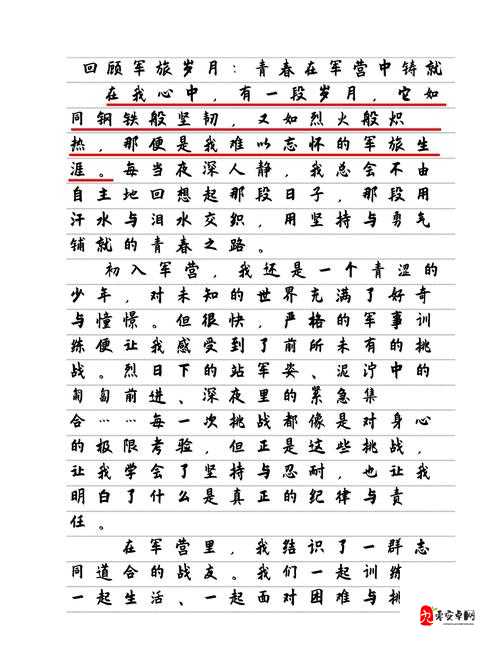 回顾军旅岁月：青春在军营中铸就
在我心中，有一段岁月，它如
同钢铁般坚韧，又如烈火般炽
热，那便是我难以忘怀的军旅生
涯。每当夜深人静，我总会不由
自主地回想起那段日子，那段用
汗水与泪水交织，用坚持与勇气
铺就的青春之路。
初入军营，我还是一个青涩的
少年，对未知的世界充满了好奇
与憧憬。但很快，严格的军事训
练便让我感受到了前所未有的挑
战。烈日下的站军姿、泥泞中的
匍匐前进、深夜里的紧急集
合……每一次挑战都像是对身心
的极限考验，但正是这些挑战，
让我学会了坚持与忍耐，也让我
明白了什么是真正的纪律与责
任。
在军营里，我结识了一群志
同道合的战友。我们一起训练
一起生活、一起面对困难与挑
零安卓网